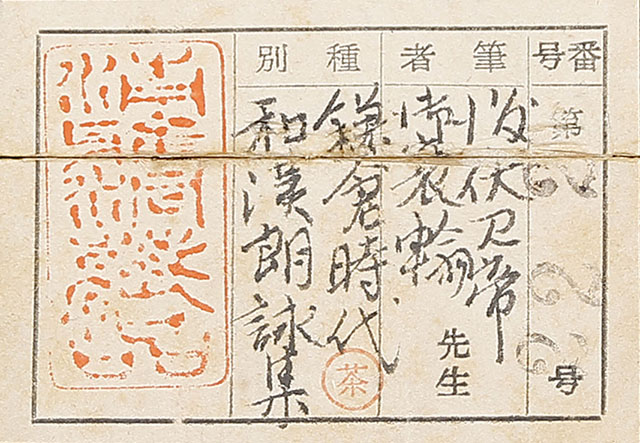 番号
第
号
筆者
後伏見帝
御宸翰
先生
種別
鎌倉時代
茶
和漢朗詠集